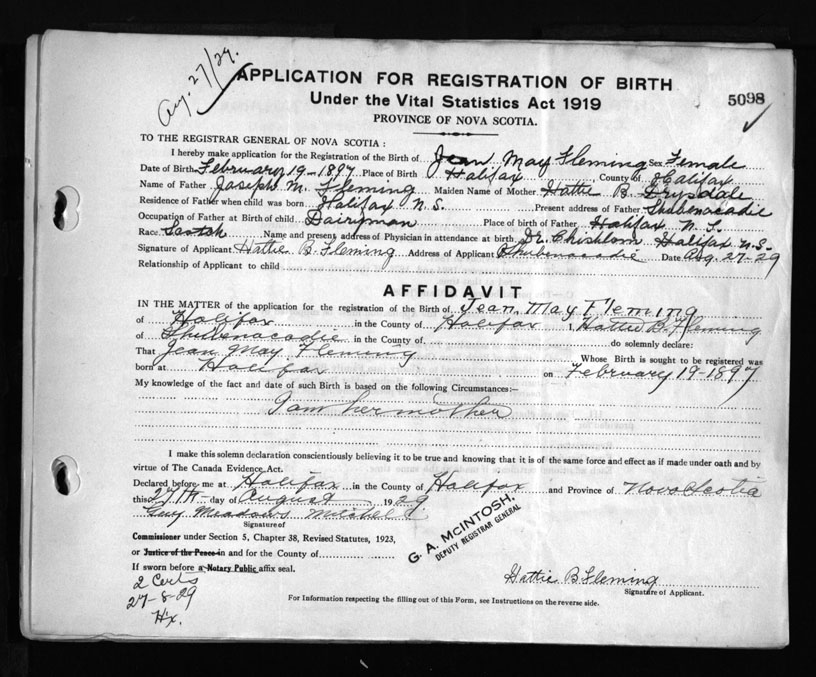 Aug. 27/29.
APPLICATION FOR REGISTRATION OF BIRTH
Under the Vital Statistics Act 1919
5098
PROVINCE OF NOVA SCOTIA.
TO THE REGISTRAR GENERAL OF NOVA SCOTIA :
I hereby make application for the Registration of the Birth of Jean May Fleming Sex Female
Date of Birth February 19-1897 Place of Birth Halifax County of Halifax
Name of Father Joseph M. Fleming Maiden Name of Mother Hattie B. Drysdale
Residence of Father when child was born Halifax N.S. Present address of Father Shubenacadie
Occupation of Father at Birth of child Dairyman Place of birth of Father Halifax N.S.
Race Scotch Name and present address of Physician in attendance at birth Dr. Chisholm Halifax N.S.
Signature of Applicant Hattie B. Fleming Address of Applicant Shubenacadie Date Aug. 27-29
Relationship of Applicant to child
AFFIDAVIT
IN THE MATTER of the application for the registration of the Birth of Jean May Fleming
of Halifax in the County of Halifax I, Hattie B. Fleming
of Shubenacadie in the County of do solemnly declare:
That Jean May Fleming Whose Birth is sought to be registered was
born at Halifax on February 19-1897
My knowledge of the fact and date of such Birth is based on the following Circumstances:—
I am her mother
I make this solemn declaration conscientiously believing it to be true and knowing that it is of the same force and effect as if made under oath and by
virtue of The Canada Evidence Act.
Declared before me at Halifax in the County of Halifax and Province of Nova Scotia
this 27th day of August 1929
Guy Meadows Mitchell
Signature of
Commissioner under Section 5, Chapter 38, Revised Statutes, 1923,
or Justice of the Peace in and for the County of
If sworn before a Notary Public affix seal.
G. A. McINTOSH,
DEPUTY REGISTRAR GENERAL
2 Certs
27-8-29
Hx.
Hattie B. Fleming
Signature of Applicant.
For Information respecting the filling out of this Form, see Instructions on the reverse side.